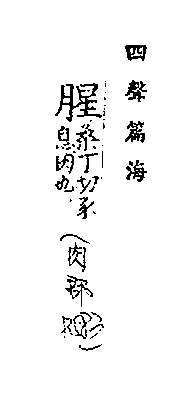 四聲篇海
腥桑丁切豕
息肉也
(肉部